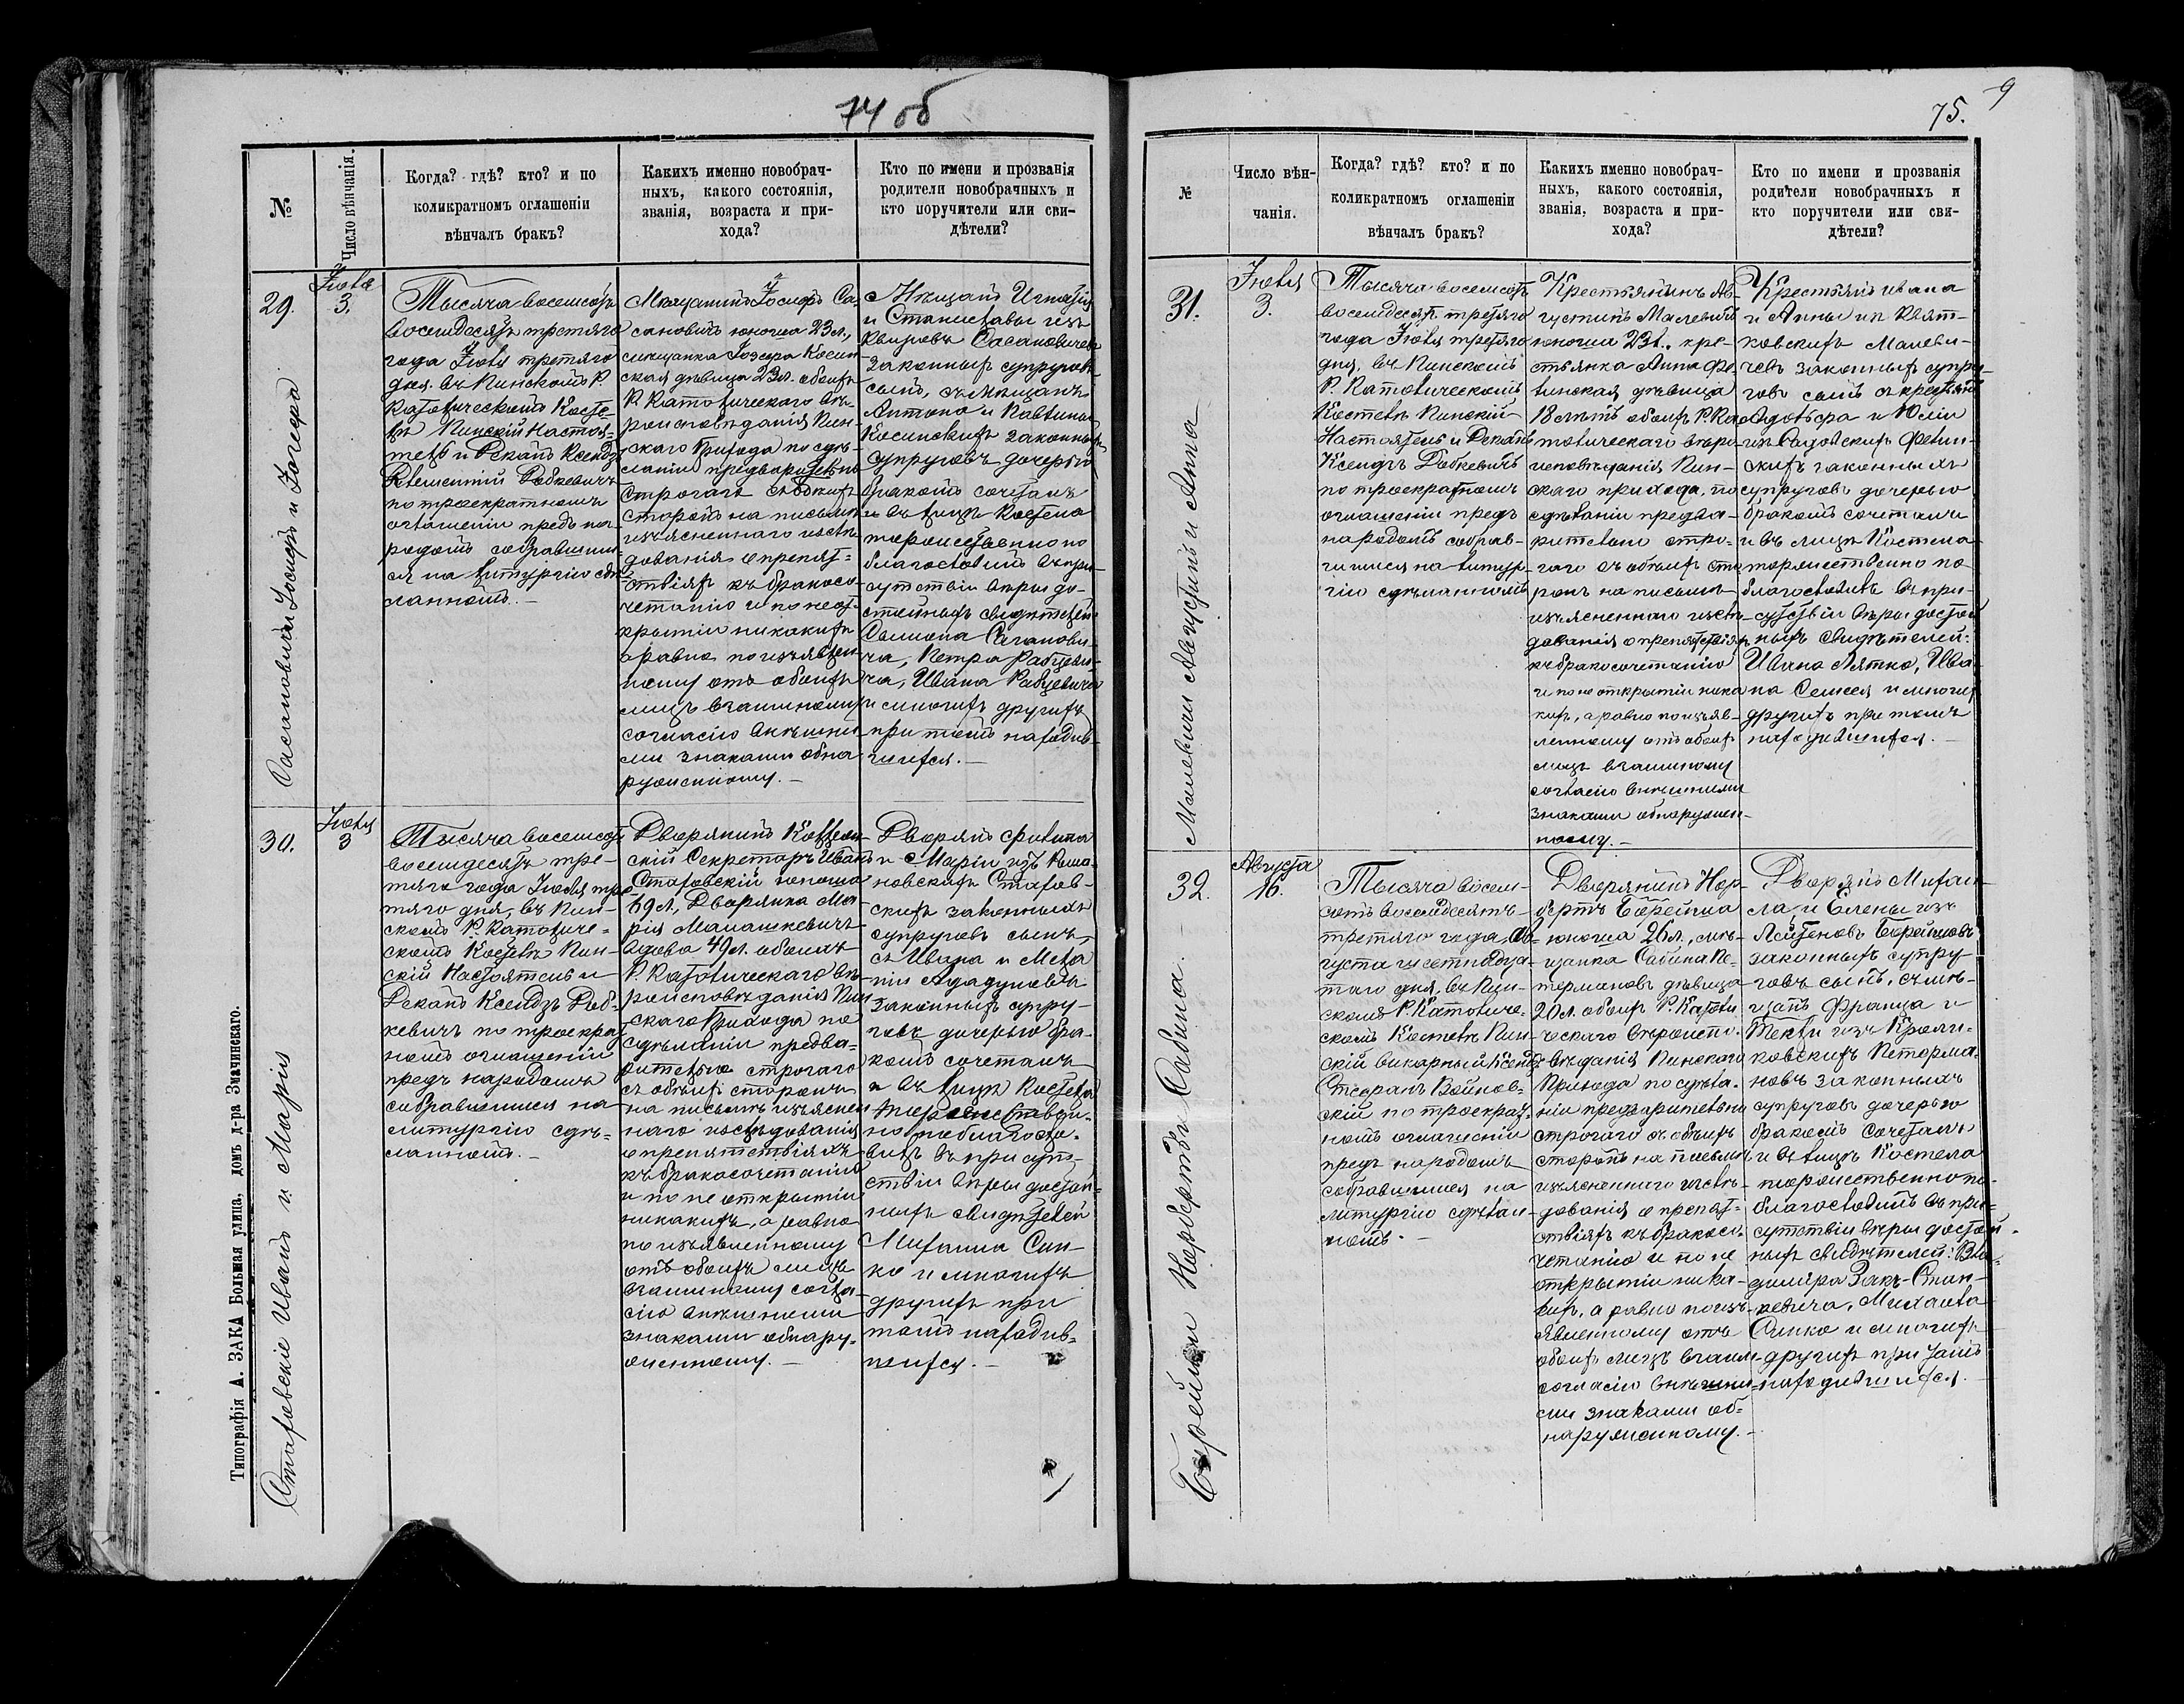 74 об
№
Число вѣнчанія.
Когда? гдѣ? кто? и по
коликратномъ оглашеніи
вѣнчалъ бракъ?
Каких именно новобрач-
ныхъ, какого состоянія,
званія, возраста и при-
хода?
Кто по имени и прозванія
родители новобрачныхъ и
кто поручители или сви-
дѣтели?
29.
Сасановичи Іосифъ и Іозефа
Іюля
3.
Тысяча восемсотъ
восемдесятъ третяго
года Іюля третяго
дня въ Пинскомъ Р.
Католическомъ Косте-
лѣ Пинскій Настоя-
тель и Деканъ Ксендзъ
Климентій Добкевичъ
по троекратномъ
оглашеніи предъ на-
родомъ собравшим-
ся на литургію сдѣ-
ланномъ. –
Мѣщанинъ Іосифъ Са-
сановичъ юноша 23 л.,
мѣщанка Іозефа Косин-
ская дѣвица 23 л. обоихъ
Р. Католическаго вѣ-
роисповѣданія Пин-
скаго Прихода по сдѣ-
ланіи предварительно
строгаго съ обѣихъ
сторонъ на письмѣ
изъясненнаго изслѣ-
дованія о препят-
ствіяхъ къ бракосо-
четанію и по неот-
крытіи никакихъ
а равно по изъявлен-
ному отъ обоихъ
лицъ взаимному
согласію внѣшни-
ми знаками обна-
руженному. –
Мѣщанъ Игнатія
и Станиславы изъ
Сасановичевъ
законныхъ супруговъ
сынъ, съ мѣщанъ
Антона и Павлины
Косинскихъ законныхъ
супруговъ дочерью
бракомъ сочеталъ
и въ лицѣ Костела
торжественно по
благословилъ въ при-
сутствіи вѣры до-
стойныхъ свидѣтелей
Самсона Сасанови-
ча, Петра Рабцеви-
ча, Ивана Рабцевича
и многихъ другихъ
при томъ находив-
шихся. –
30.
Стаховскіе Иванъ и Марія
Іюля
3
Тысяча восемсотъ
восемдесятъ тре-
тяго года Іюля тре-
тяго дня, въ Пин-
скомъ Р. Католиче-
скомъ Костелѣ Пин-
скій Настоятель и
Деканъ Ксендзъ Доб-
кевичъ по троекрат-
номъ оглашеніи
предъ народомъ
собравшимся на
литургію сдѣ-
ланномъ. –
Дворянинъ Коллеж-
скій Секретарь Иванъ
Стаховскій юноша
69 л., Дворянка Ма-
рія Манашкевичъ
вдова 49 л. обоихъ
Р. Католическаго вѣ-
роисповѣданія Пин-
скаго Прихода по
сдѣланіи предва-
рительно строгаго
съ обѣихъ сторонъ
на письмѣ изъяснен-
наго изслѣдованія
о препятствіяхъ
къ бракосочетанію
и по не открытіи
никакихъ, а равно
по изъявленному
отъ обоихъ лицъ
взаимному согла-
сію внѣшними
знаками обнару-
женному. –
Дворянъ Филипа
и Маріи изъ
Стахов-
скихъ законныхъ
супруговъ сынъ,
съ Ивана и Мела-
ніи Ададуровъ
законныхъ супру-
говъ дочерью бра-
комъ сочеталъ
и въ лицѣ Костела
торжествен-
но поблагосло-
вилъ въ присут-
ствіи вѣры достой-
ныхъ свидѣтелей
Михаила Син-
ко и многихъ
другихъ при
томъ находив-
шихся. –
Типографія А. ЗАКА Большая улица, домъ д-ра Значинскаго.
75.
9
№
Число вѣн-
чанія.
Когда? гдѣ? кто? и по
коликратномъ оглашеніи
вѣнчалъ бракъ?
Какихъ именно новобрач-
ныхъ, какого состоянія,
званія, возраста и при-
хода?
Кто по имени и прозванія
родители новобрачныхъ и
кто поручители или сви-
дѣтели?
31.
Малевичи Августинъ и Анна
Іюля
3.
Тысяча восемсотъ
восемдесятъ третяго
года Іюля третяго
дня, въ Пинскомъ
Р. Католическомъ
Костелѣ Пинскій
Настоятель и Деканъ
Ксендзъ Добкевичъ
по троекратномъ
оглашеніи предъ
народомъ собрав-
шимся на литур-
гію сдѣланномъ
Крестьянинъ Ав-
густинъ Малевичъ
юноша 23 л., кре-
стьянка Анна Фе-
линская дѣвица
18 лѣтъ обоихъ Р. Ка-
толическаго вѣро
исповѣданія Пин-
скаго прихода, по
сдѣланіи предва-
рительно стро-
гаго съ обѣихъ сто-
ронъ на письмѣ
изъясненнаго изслѣ-
дованія о препятствіяхъ
къ бракосочетанію
и по не открытіи ника
кихъ, а равно по изъяв-
ленному отъ обоихъ
лицъ взаимному
согласію внѣшними
знаками обнаружен-
ному. –
Крестьянъ Ивана
и Анны изъ Квят-
ковскихъ Малеви-
чевъ законныхъ супру-
говъ сынъ съ крестьянъ
Адольфа и Юліи
изъ Садовскихъ Фелин-
скихъ законныхъ
супруговъ дочерью
бракомъ сочеталъ
и въ лицѣ Костела
торжественно по
благословилъ въ при-
сутствіи вѣры достой
ныхъ свидѣтелей:
Ивана Лятко, Ива-
на Семсея и многихъ
другихъ при томъ
находившихся. –
32.
Борейши Норбертъ и Сабина.
Августа
16.
Тысяча восем-
сотъ восемдесятъ
третяго года, Ав-
густа шестнадца-
таго дня, въ Пин-
скомъ Р. Католиче-
скомъ Костелѣ Пин-
скій викарный Ксендзъ
Войнов-
скій по троекрат-
номъ оглашеніи
предъ народомъ
собравшимся на
литургію сдѣлан-
номъ. –
Дворянинъ Нор-
бертъ Борейша
юноша 26 л., мѣ-
щанка Сабина Пе-
термановъ дѣвица
20 л. обоихъ Р. Католи
ческаго вѣроиспо-
вѣданія Пинскаго
Прихода по сдѣла-
ніи предварительно
строгаго съ обѣихъ
сторонъ на письмѣ
изъясненнаго изслѣ-
дованія о препят-
ствіяхъ къ бракосо-
четанію и по не
открытіи ника-
кихъ, а равно по изъ-
явленному отъ
обоихъ лицъ взаим-
согласію внѣшни-
ми знаками об-
наруженному. –
Дворянъ Михаи-
ла и Елены изъ
Борейшовъ
законныхъ супру-
говъ сынъ, съ мѣ-
щанъ Франца и
Теклі изъ Кроли-
ковскихъ Петерма-
новъ законныхъ
супруговъ дочерью
бракомъ сочеталъ
и въ лицѣ Костела
торжественно по-
благословилъ въ при-
сутствіи вѣры достой-
ныхъ свидѣтелей: Вла-
диміра Закъ-Стан-
кевича, Михаила
Синко и многихъ
другихъ при томъ
находившихся.